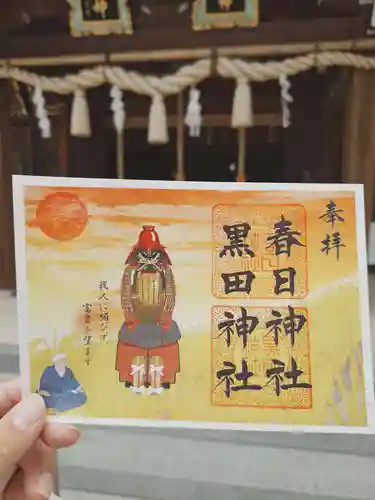 神
神
奉拝
春日神社
黒田神社
我人に媚びず
富貴を望まず